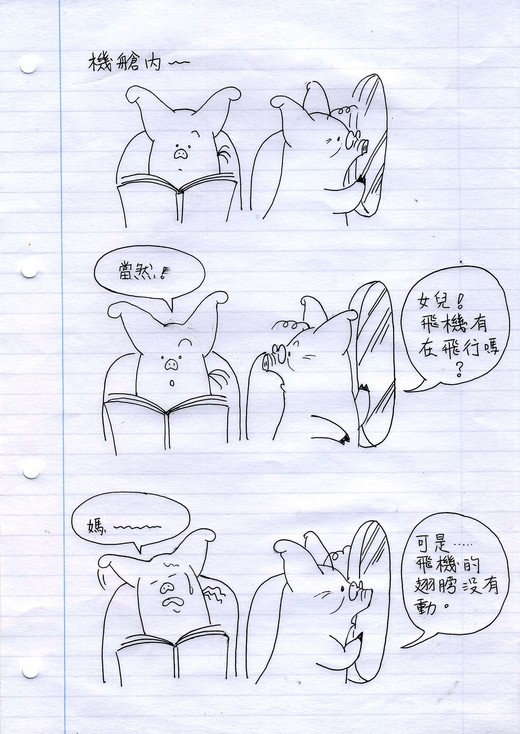 機艙內~
當然!
女兒!
飛機有
在飛行嗎
?
媽~~~
可是……
飛機的
翅膀沒有
動。